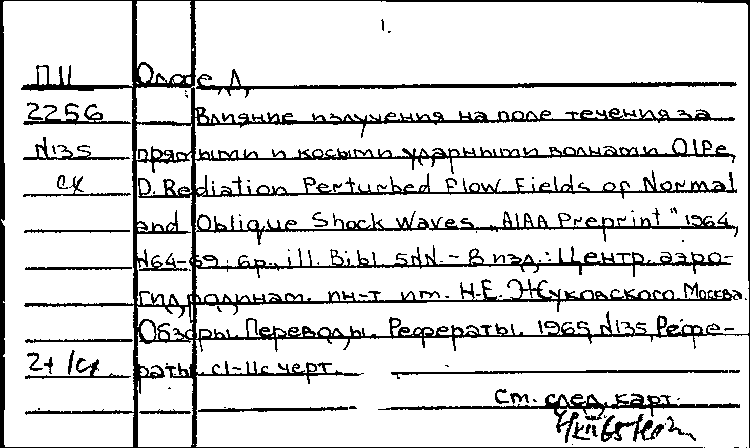 1.
П11 Олфе, Д,
2256 Влияние излучения на поле течения за
N135 прямыми и косыми ударными волнами Olfe,
сх D. Rediation Perturbed Flow Fields of Normal
and Oblique Shock Waves „AIAA Preprint" 1964,
N64-69; 6p., ill. Bibl 5NN. - В изд.: Центр. аэро-
гидродинам. ин-т им. Н.Е. Жуковского. Москва.
Обзоры. Переводы. Рефераты. 1965, N135, Рефе-
2+1сх раты. с1-11с черт.
См. след. карт.